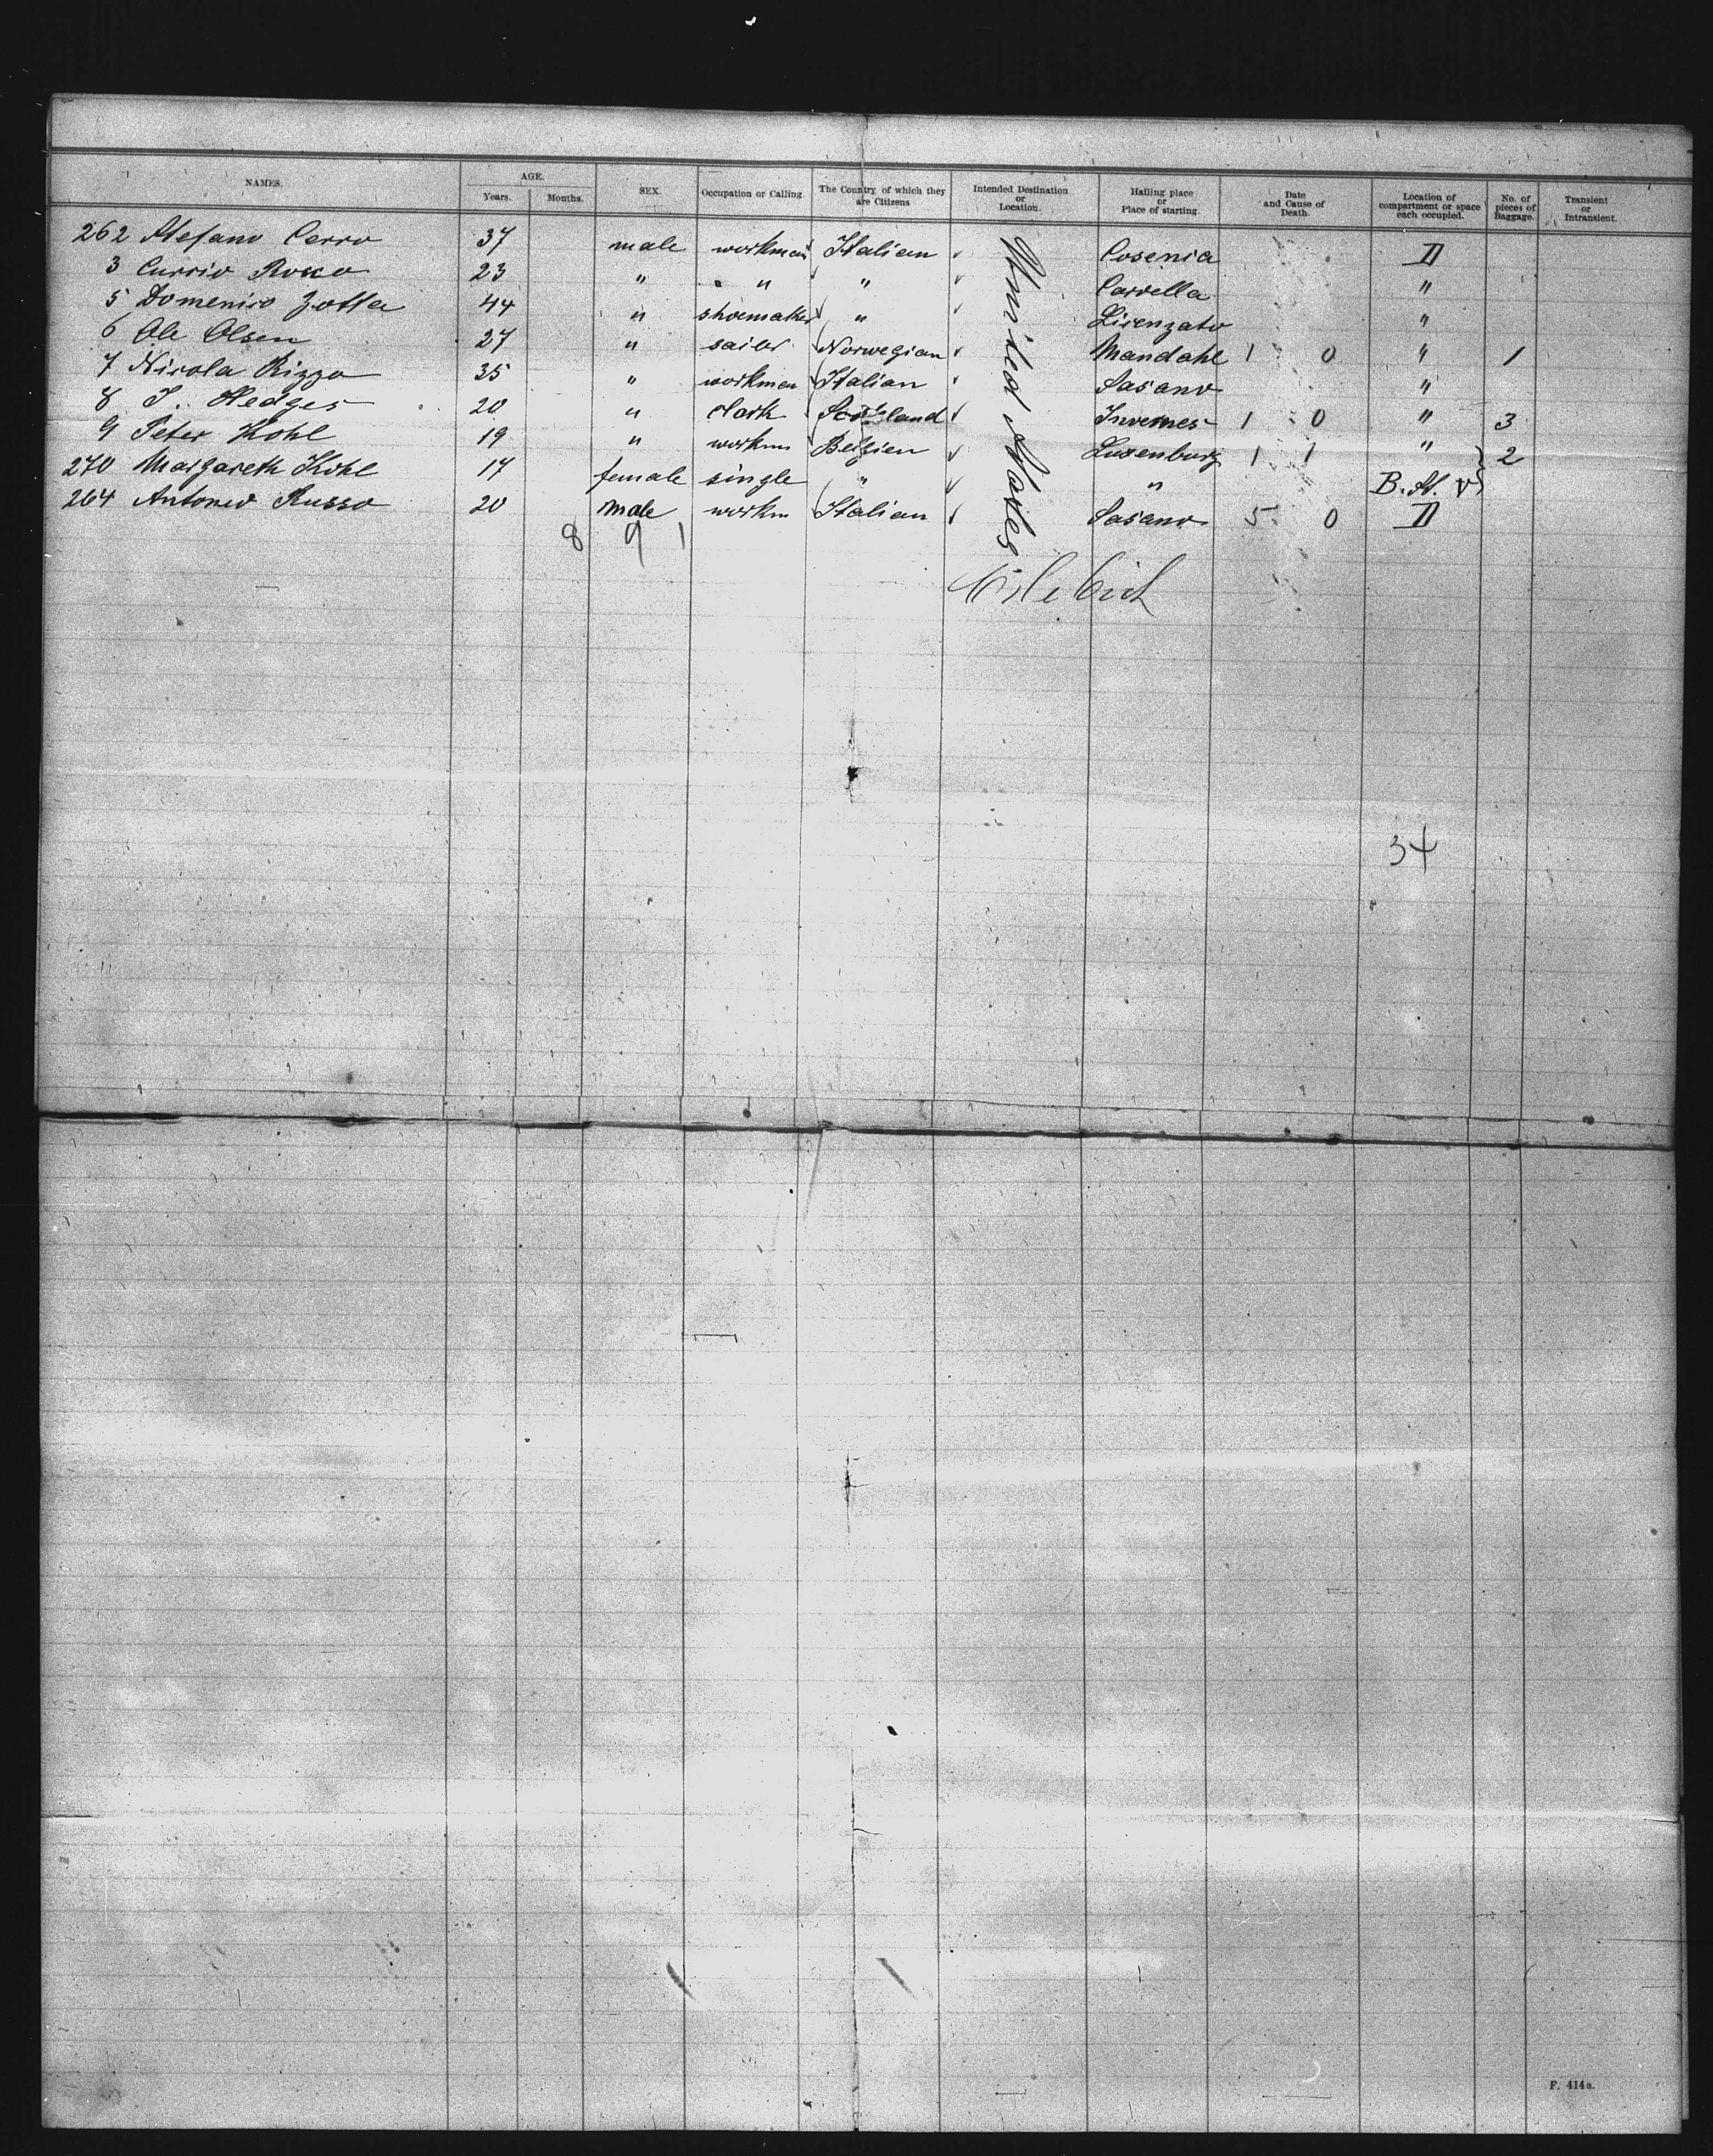 NAMES. AGE. SEX. Occupation or Calling. The Country of which they are Citizens Intended Destination or Location. Hailing place or Place of starting. Date and Cause of Death. Location of compartment or space each occupied. No. of pieces of Baggage. Transient or Intransient.
Years. Months.
262 Stefano Cerro 37 male workman Italian Cosenia II
3 Currio Rosco 23 " " " " Carvella "
5 Domenico Zotta 44 " shoemaker " "
6 Ole Olsen 27 " sailor Norwegian Mandahl 1 0 " 1
7 Nicola Rizzo 35 " workman Italian Sasano "
8 J. Hedges 20 " clark Scotland Invernes 1 0 " 3
9 Peter Kohl 19 " workm Belgien Luxenburg 1 1 " 2
270 Margareth Kohl 17 female single " " B. St. V
264 Antonio Russo 20 male workm Italian Sasano 5 0 II
United States
8 9 1
34
F. 414a.